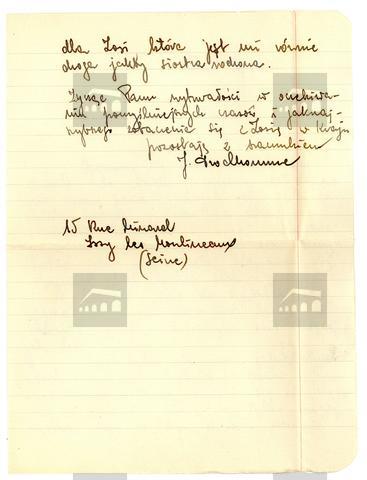 dla Zosi która jest mi równie
droga jakby siostra rodzona.
Życząc Panu wytrwałości w oczekiwa-
niu pomyślniejszych czasów i jaknaj-
zobaczenia się z Zosią w Kraju
pozostaję z szacunkiem
J. Prodhomme
15 Rue
Issy les Moulineaux
(Seine)